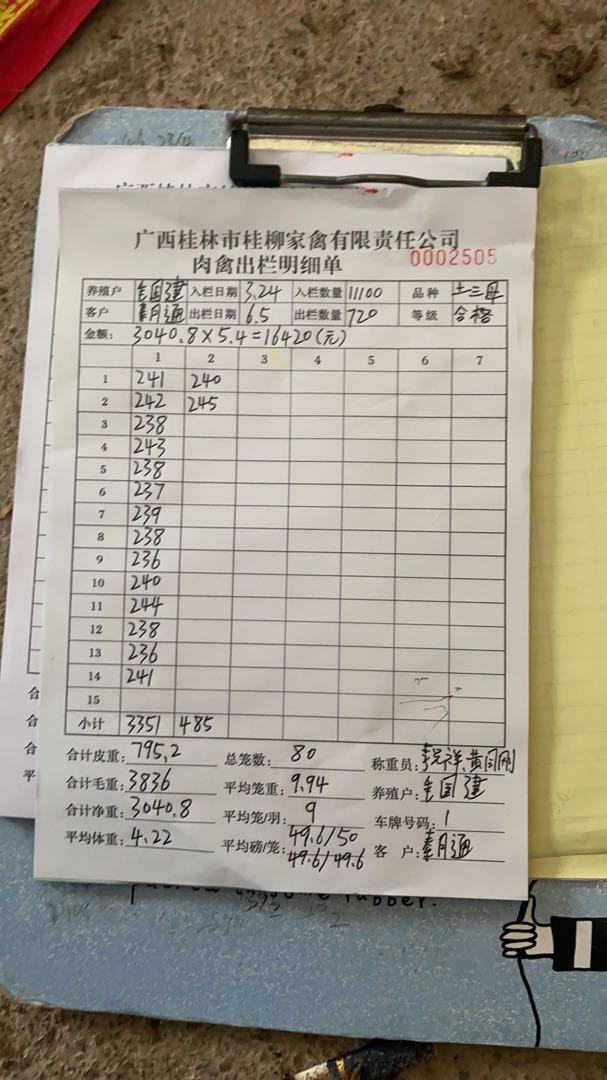 广西桂林市桂柳家禽有限责任公司
肉禽出栏明细单 0002505
养殖户 国建 入栏日期 3.24 入栏数量 11100 品种 土三母
客户 秦月通 出栏日期 6.5 出栏数量 720 等级 合格
金额: 3040.8×5.4=16420(元)
1 2 3 4 5 6 7
1 241 240
2 242 245
3 238
4 243
5 238
6 237
7 239
8 238
9 236
10 240
11 244
12 238
13 236
14 241
15
小计 3351 485
合计皮重: 795.2 总笼数: 80 称重员: 黄国刚
合计毛重: 3836 平均笼重: 9.94 养殖户: 国建
合计净重: 3040.8 平均笼/羽: 9 车牌号码: 1
平均体重: 4.22 平均磅/笼: 49.6/50 客户: 秦月通
49.6/49.6
合
合
合
平
rubber.